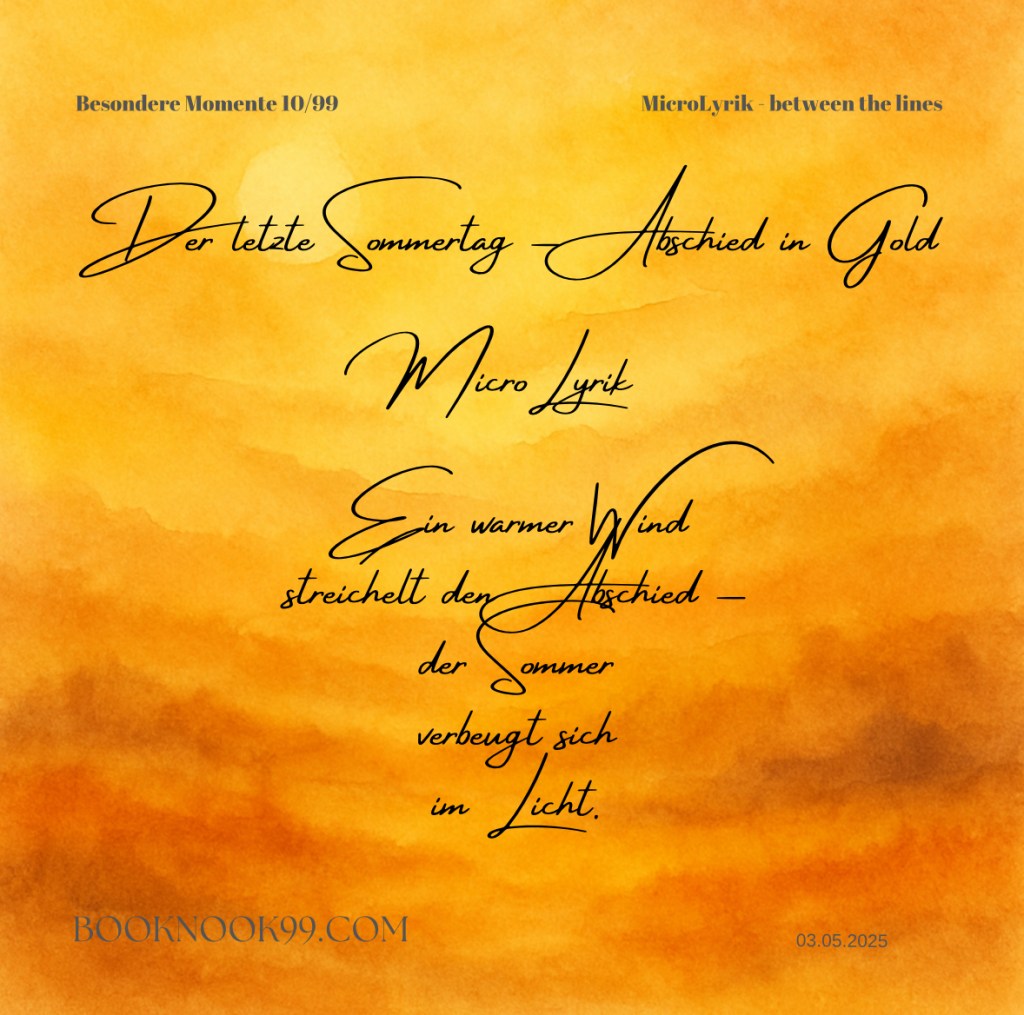 Besondere Momente 10/99
MicroLyrik - between the lines
Der letzte Sommertag – Abschied in Gold
Micro Lyrik
Ein warmer Wind
streichelt den Abschied –
der Sommer
verbeugt sich
im Licht.
BOOKNOOK99.COM
03.05.2025